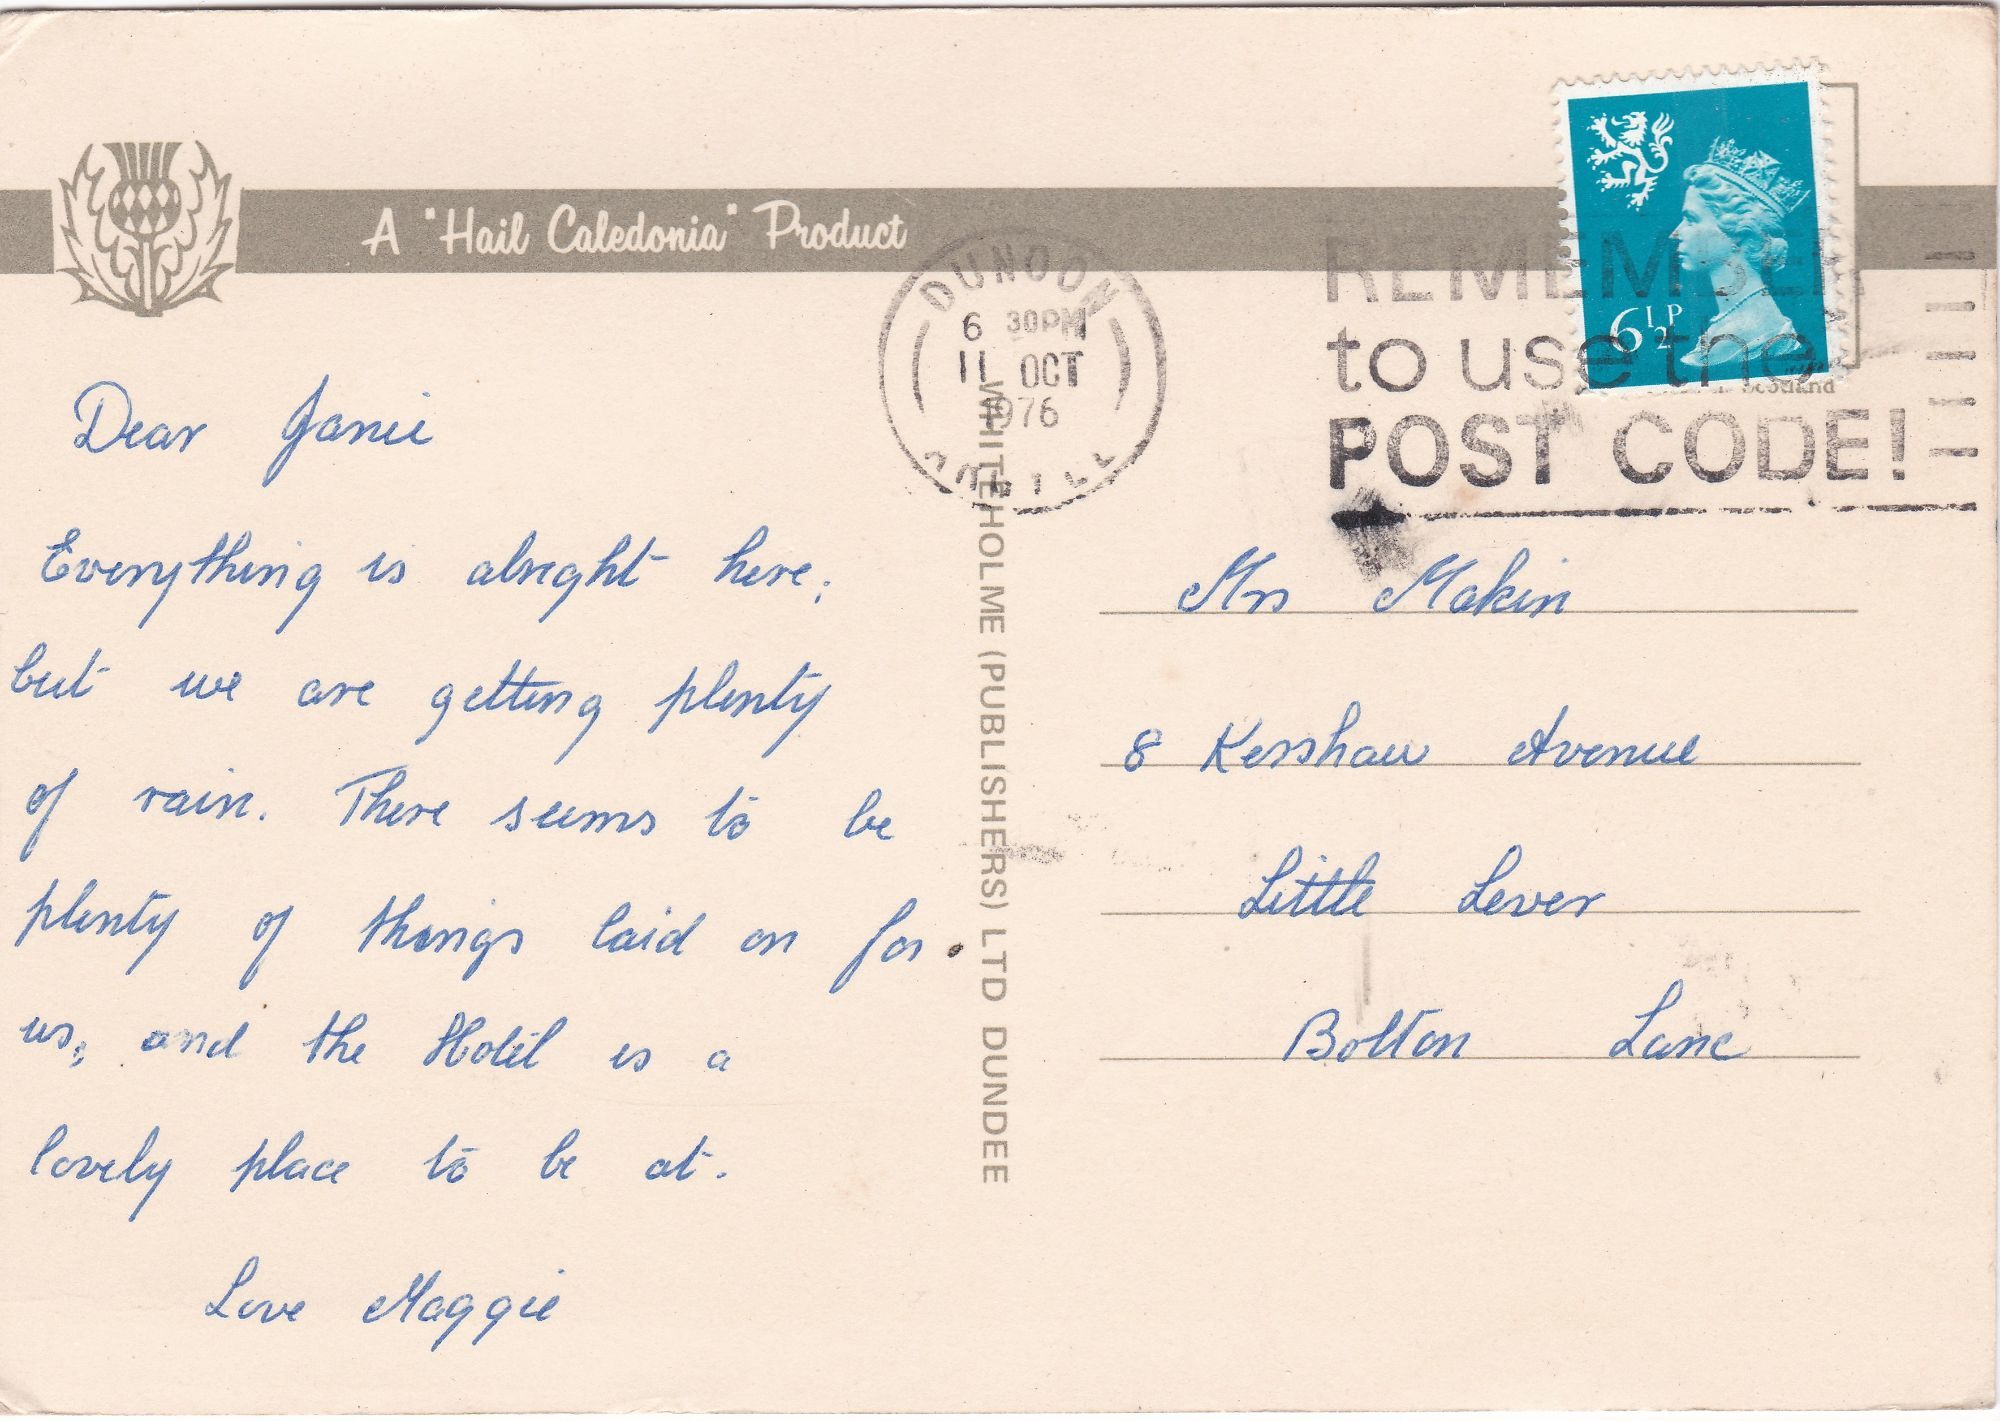 A "Hail Caledonia" Product
DUNOON
6 30PM
11 OCT
1976
ARGYLL
REMEMBER
to use the
POST CODE!
6½P
Scotland
Dear Janie
Everything is alright here,
but we are getting plenty
of rain. There seems to be
plenty of things laid on for
us, and the Hotel is a
lovely place to be at.
Love Maggie
WHITEHOLME (PUBLISHERS) LTD DUNDEE
Mrs Makin
8 Kershaw Avenue
Little Lever
Bolton Lanc